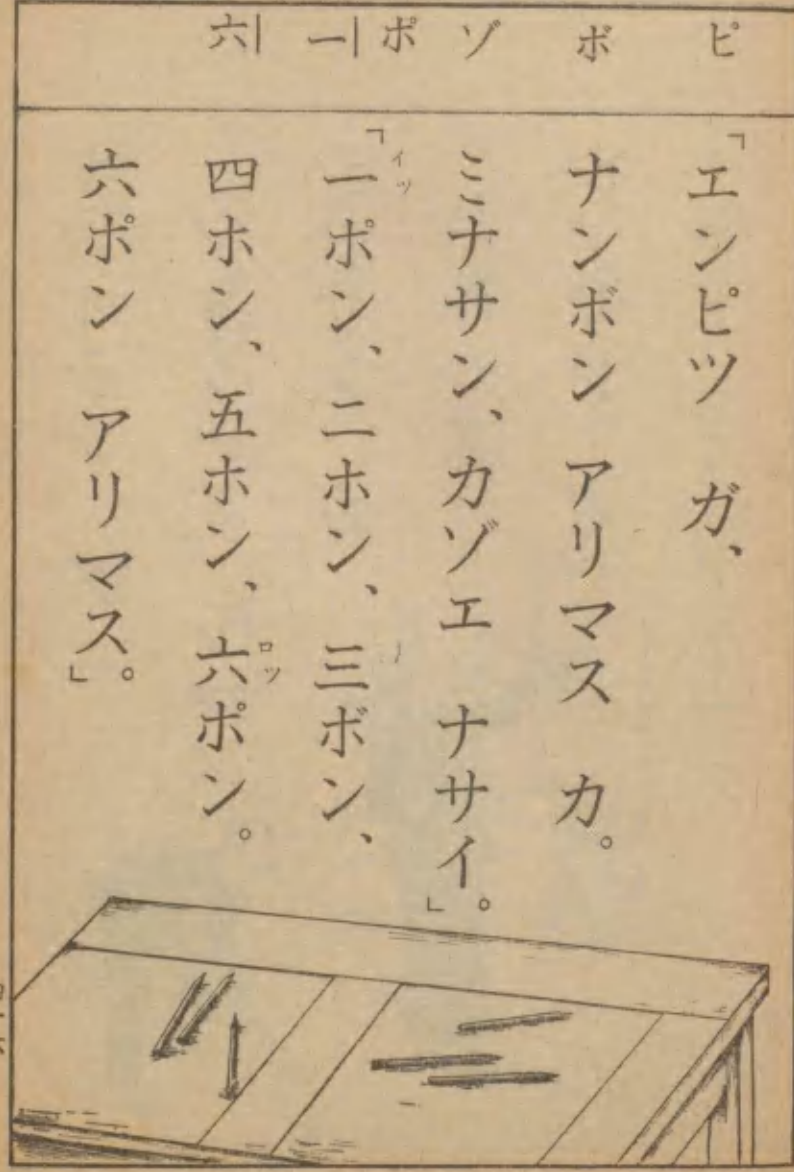 ピ
ボ
ゾ
ポ
一
六
「エンピツ ガ、
ナンボン アリマス カ。
ミナサン、カゾエ ナサイ」。
「一ポン、二ホン、三ボン、
イッ
四ホン、五ホン、六ポン。
ロッ
六ポン アリマス」。